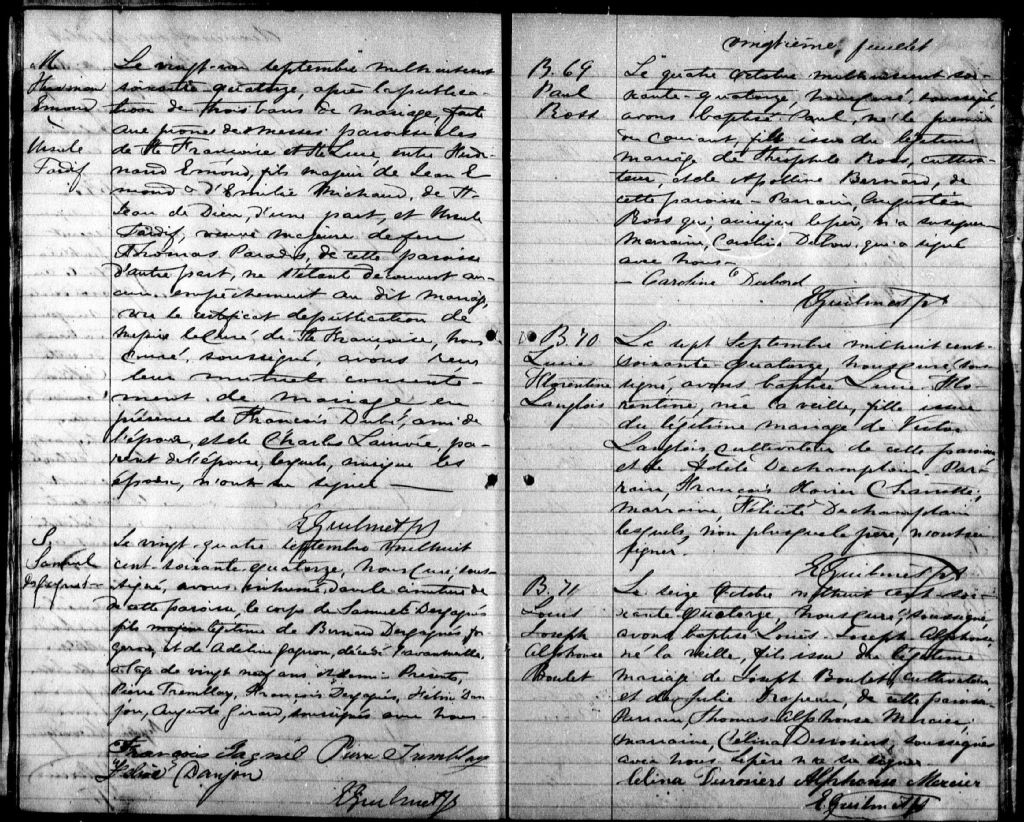 M
Emond
&
Ursule
Tardif
Le vingt-un septembre mil huit cent
soixante-quatorze, après la publica-
tion de trois bans de mariage, faite
aux prones des messes paroissiales
de Ste Françoise et St Luc, entre Ferdi-
nand Emond, fils majeur de Jean E-
mond & d'Emilie Michaud, de St
Jean de Dieu, d'une part, et Ursule
Tardif, veuve majeure de feu
Thomas Paradis, de cette paroisse
d'autre part, ne s'étant découvert au-
cun empêchement au dit mariage,
vu le certificat de publication de
Messire le Curé de Ste Françoise, nous
Curé, soussigné, avons reçu
leur mutuel consente-
ment de mariage en
présence de François Dubé, ami de
l'époux, et de Charles Lauvée, pa-
rent de l'épouse, lesquels, ainsi que les
époux, n'ont su signer
E Guilmet ptr
S
Samuel
Le vingt-quatre septembre mil huit
cent-soixante-quatorze, nous curé, sous-
signé, avons inhumé, dans le cimetière de
cette paroisse, le corps de Samuel Desgagnés
fils légitime de Bernard Desgagnés for
geron, et de Adeline Gagnon, décédé l'avant veille,
à l'age de vingt neuf ans et demi. Présents,
Pierre Tremblay, François Desgagnés, Félix Dan-
jou, Auguste Girard, soussignés avec nous.
François Pierre Tremblay
Danjou
E Guilmet ptr
vingtième feuillet
B. 69
Paul
Ross
Le quatre Octobre mil huit cent soi-
xante-quatorze, nous curé, soussigné,
avons baptisé Paul, né le premier
du courant, fils issu du légitime
mariage de Théophile Ross, cultiva-
teur, et de Apolline Bernard, de
cette paroisse - Parrain, Augustin
Ross qui, ainsi que le père, n'a su signer
Marraine, Caroline Dubord qui a signé
avec nous-
- Caroline Dubord
E Guilmet ptr
B. 70
Lucie
Florentine
Langlois
Le sept Septembre mil huit cent-
soixante quatorze, nous curé, sous
signé, avons baptisé Lucie Flo-
rentine, née la veille, fille issue
du légitime mariage de Victor
Langlois, cultivateur de cette paroisse
et de Adèle Dechamplain Par-
rain, François Xavier Charette;
marraine, Félicité Dechamplain
lesquels, non plus que le père, n'ont su
signer.
E Guilmet ptr
B. 71
Louis
Joseph
Alphonse
Boulet
Le seize Octobre mil huit cent soi-
xante-quatorze, nous curé, soussigné,
avons baptisé Louis Joseph Alphonse,
né la veille, fils issu du légitime
mariage de Joseph Boulet, cultivateur,
et de Julie Drapeau, de cette paroisse
Parrain, Thomas Alphonse Mercier;
marraine, Célina Desrosiers, soussignés
avec nous. Le père n'a su signer
Célina Durosiers Alphonse Mercier
E Guilmet ptr